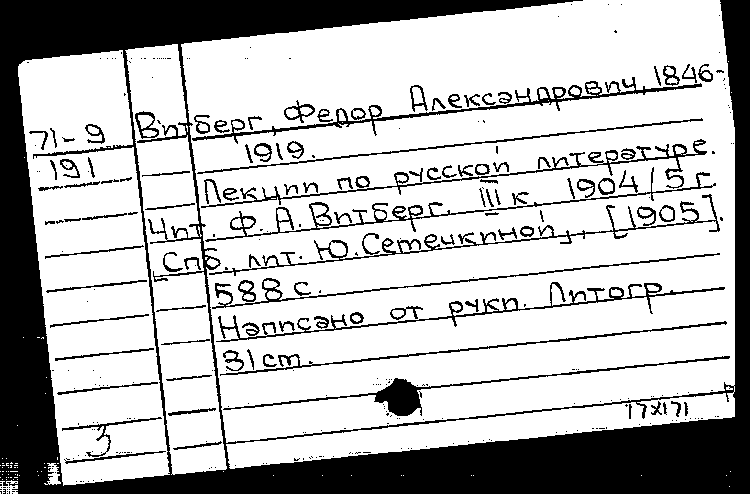 Витберг, Федор Александрович, 1846-
71-9
1919.
191
Лекции по русской литературе.
Чит. Ф. А. Витберг. III к. 1904/5 г.
[Спб., лит. Ю. Сетечкиной], [1905].
588 с.
Написано от руки. Литогр.
31 cm.
3
17XI71